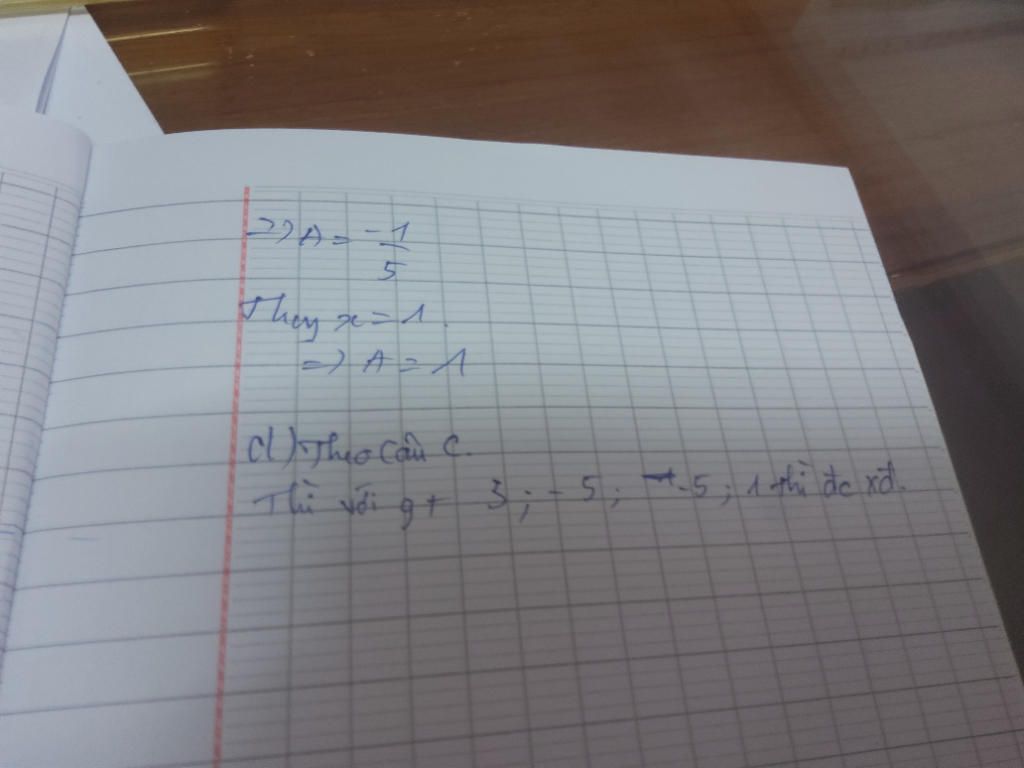 => A = -1/5
Thay x = 1.
=> A = 1
d) Theo câu c.
Thì với gt 3 ; -5 ; -5 ; 1 thì đc xđ.